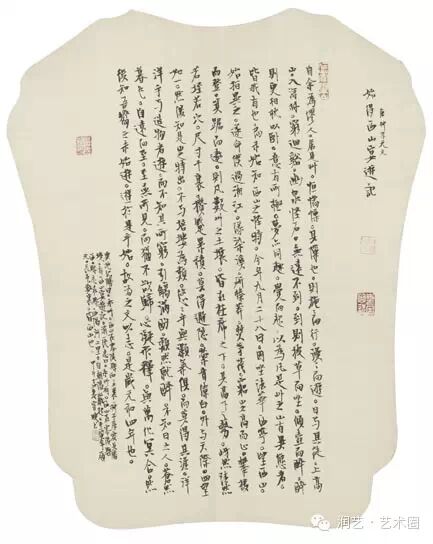 唐柳宗元文
始得西山宴遊記
自余為僇人。居是州。恒惴慄。其隙也。則施施而行。漫漫而遊。日與其徒上高
山。入深林。窮迴谿。幽泉怪石。無遠不到。到則披草而坐。傾壺而醉。醉
則更相枕以臥。意有所極。夢亦同趣。覺而起。以為凡是州之山有異態者。
皆我有也。而未始知西山之怪特。今年九月二十八日。因坐法華西亭。望西山。
始指異之。遂命僕過湘江。緣染溪。斫榛莽。焚茅茷。窮山之高而止。攀援
而登。箕踞而遨。則凡數州之土壤。皆在衽席之下。其高下之勢。岈然洼然。
若垤若穴。尺寸千里。攢蹙累積。莫得遯隱。縈青繚白。外與天際。四望
如一。然後知是山之特出。不與培塿為類。悠悠乎與灝氣俱。而莫得其涯。洋
洋乎與造物者遊。而不知其所窮。引觴滿酌。頹然就醉。不知日之入。蒼然
暮色。自遠而至。至無所見。而猶不欲歸。心凝形釋。與萬化冥合。然
後知吾嚮之未始遊。遊於是乎始。故為之文以志。是歲元和四年也。
润艺·艺术圈